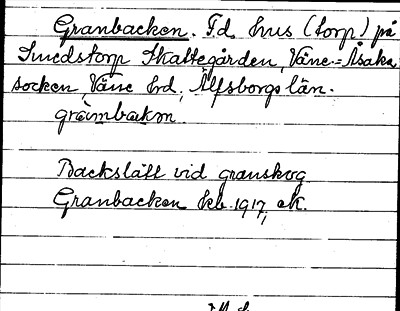 Granbacken. F.d. hus (torp) på
Smedstorp Skattegården, Väne-Åsaka
socken, Väne hd, Älfsborgs län.
Backslätt vid granskog
Granbacken kb. 1917, ek.